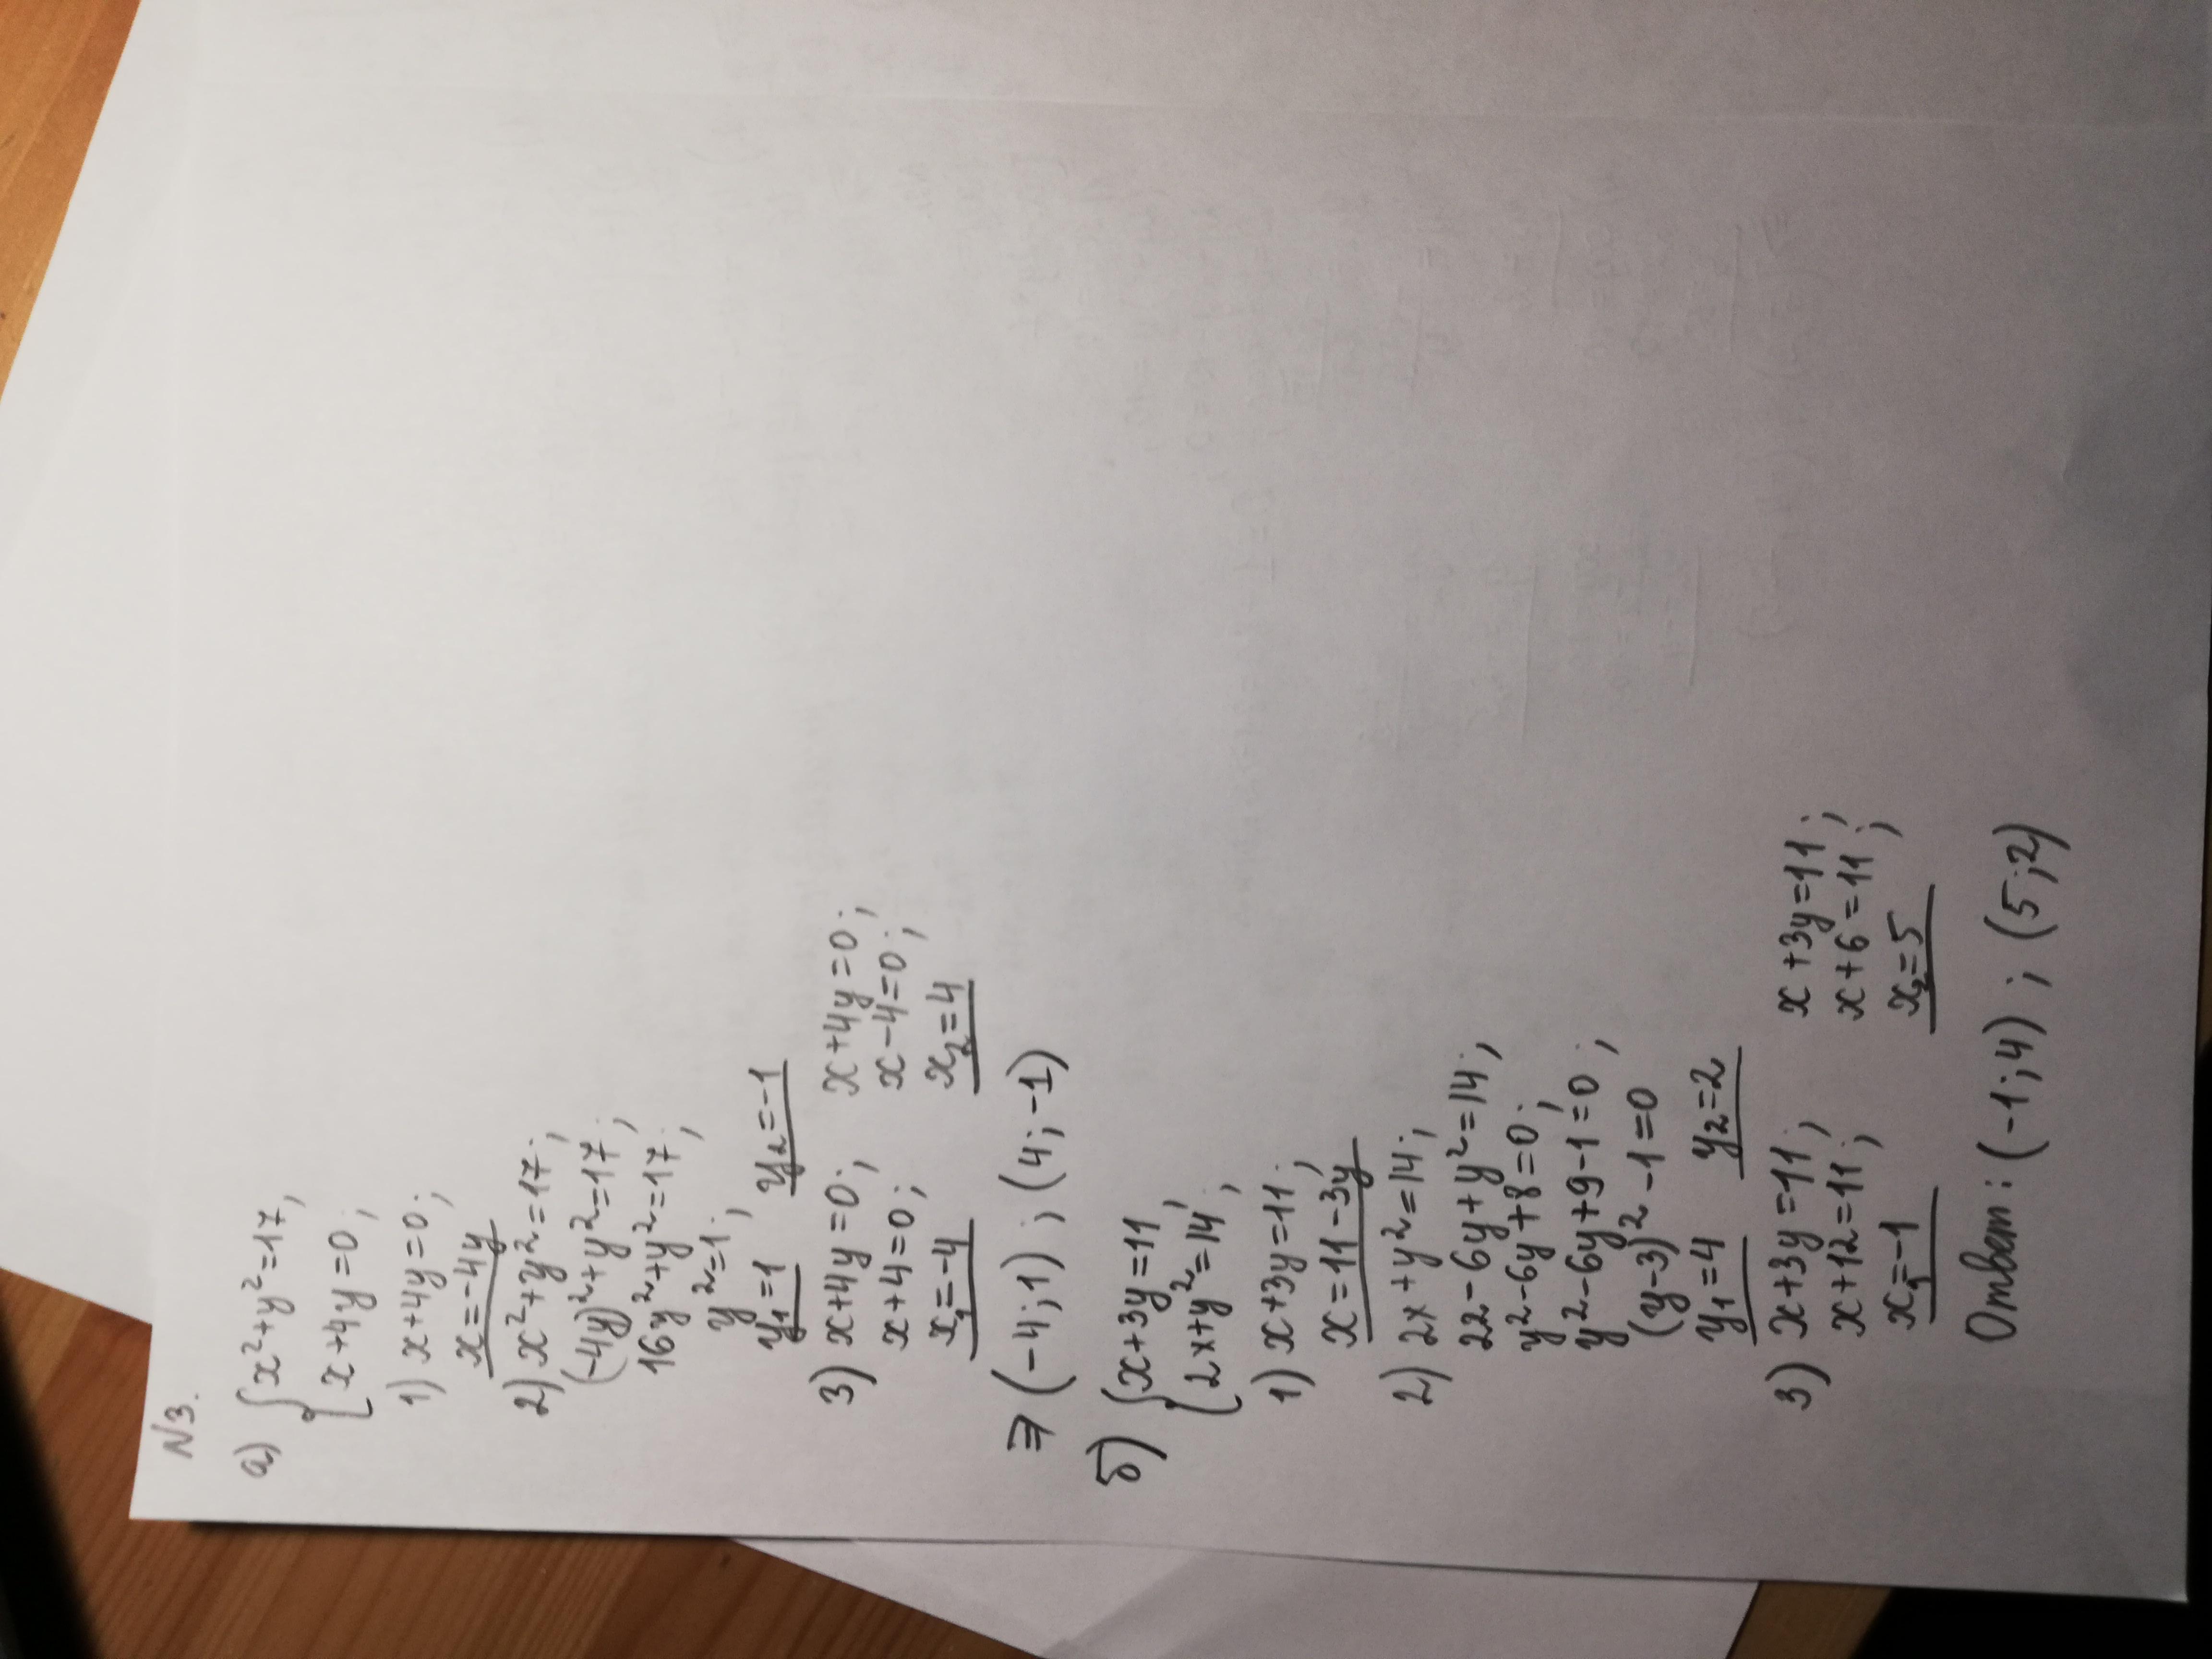 N3.
а) { x²+y²=17,
x+4y=0;
1) x+4y=0;
x=-4y
2) x²+y²=17;
(-4y)²+y²=17;
16y²+y²=17;
y²=1;
y₁=1 y₂=-1
3) x+4y=0; x+4y=0;
x+4=0; x-4=0;
x₁=-4 x₂=4
⇒ (-4;1) ; (4;-1)
б) { x+3y=11,
2x+y²=14;
1) x+3y=11;
x=11-3y
2) 2x+y²=14;
22-6y+y²=14;
y²-6y+8=0;
y²-6y+9-1=0;
(y-3)²-1=0
y₁=4 y₂=2
3) x+3y=11; x+3y=11;
x+12=11; x+6=11;
x₁=-1 x₂=5
Ответ: (-1;4) ; (5;2)